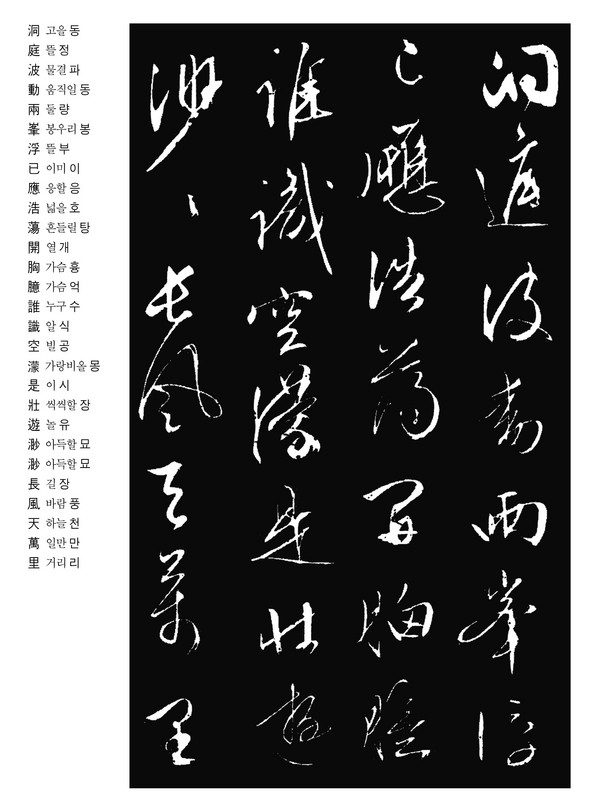 洞 고을 동
庭 뜰 정
波 물결 파
動 움직일 동
兩 둘 량
峯 봉우리 봉
浮 뜰 부
已 이미 이
應 응할 응
浩 넓을 호
蕩 흔들릴 탕
開 열 개
胸 가슴 흉
臆 가슴 억
誰 누구 수
識 알 식
空 빌 공
濛 가랑비올 몽
是 이 시
壯 씩씩할 장
遊 놀 유
渺 아득할 묘
渺 아득할 묘
長 길 장
風 바람 풍
天 하늘 천
萬 일만 만
里 거리 리
洞庭波動兩峯浮
已應浩蕩開胸臆
誰識空濛是壯遊
渺〻長風天萬里